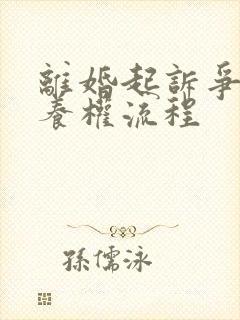 離婚起訴爭
養權流程
孫儒泳